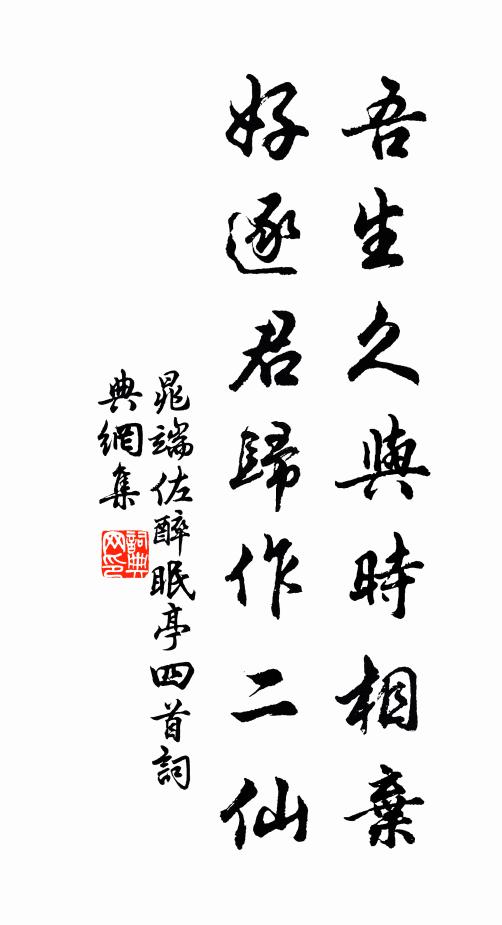 吾生久與時相棄
好逐君歸作二仙
晁端佐醉眠亭四首詞
典網集
詞典网印